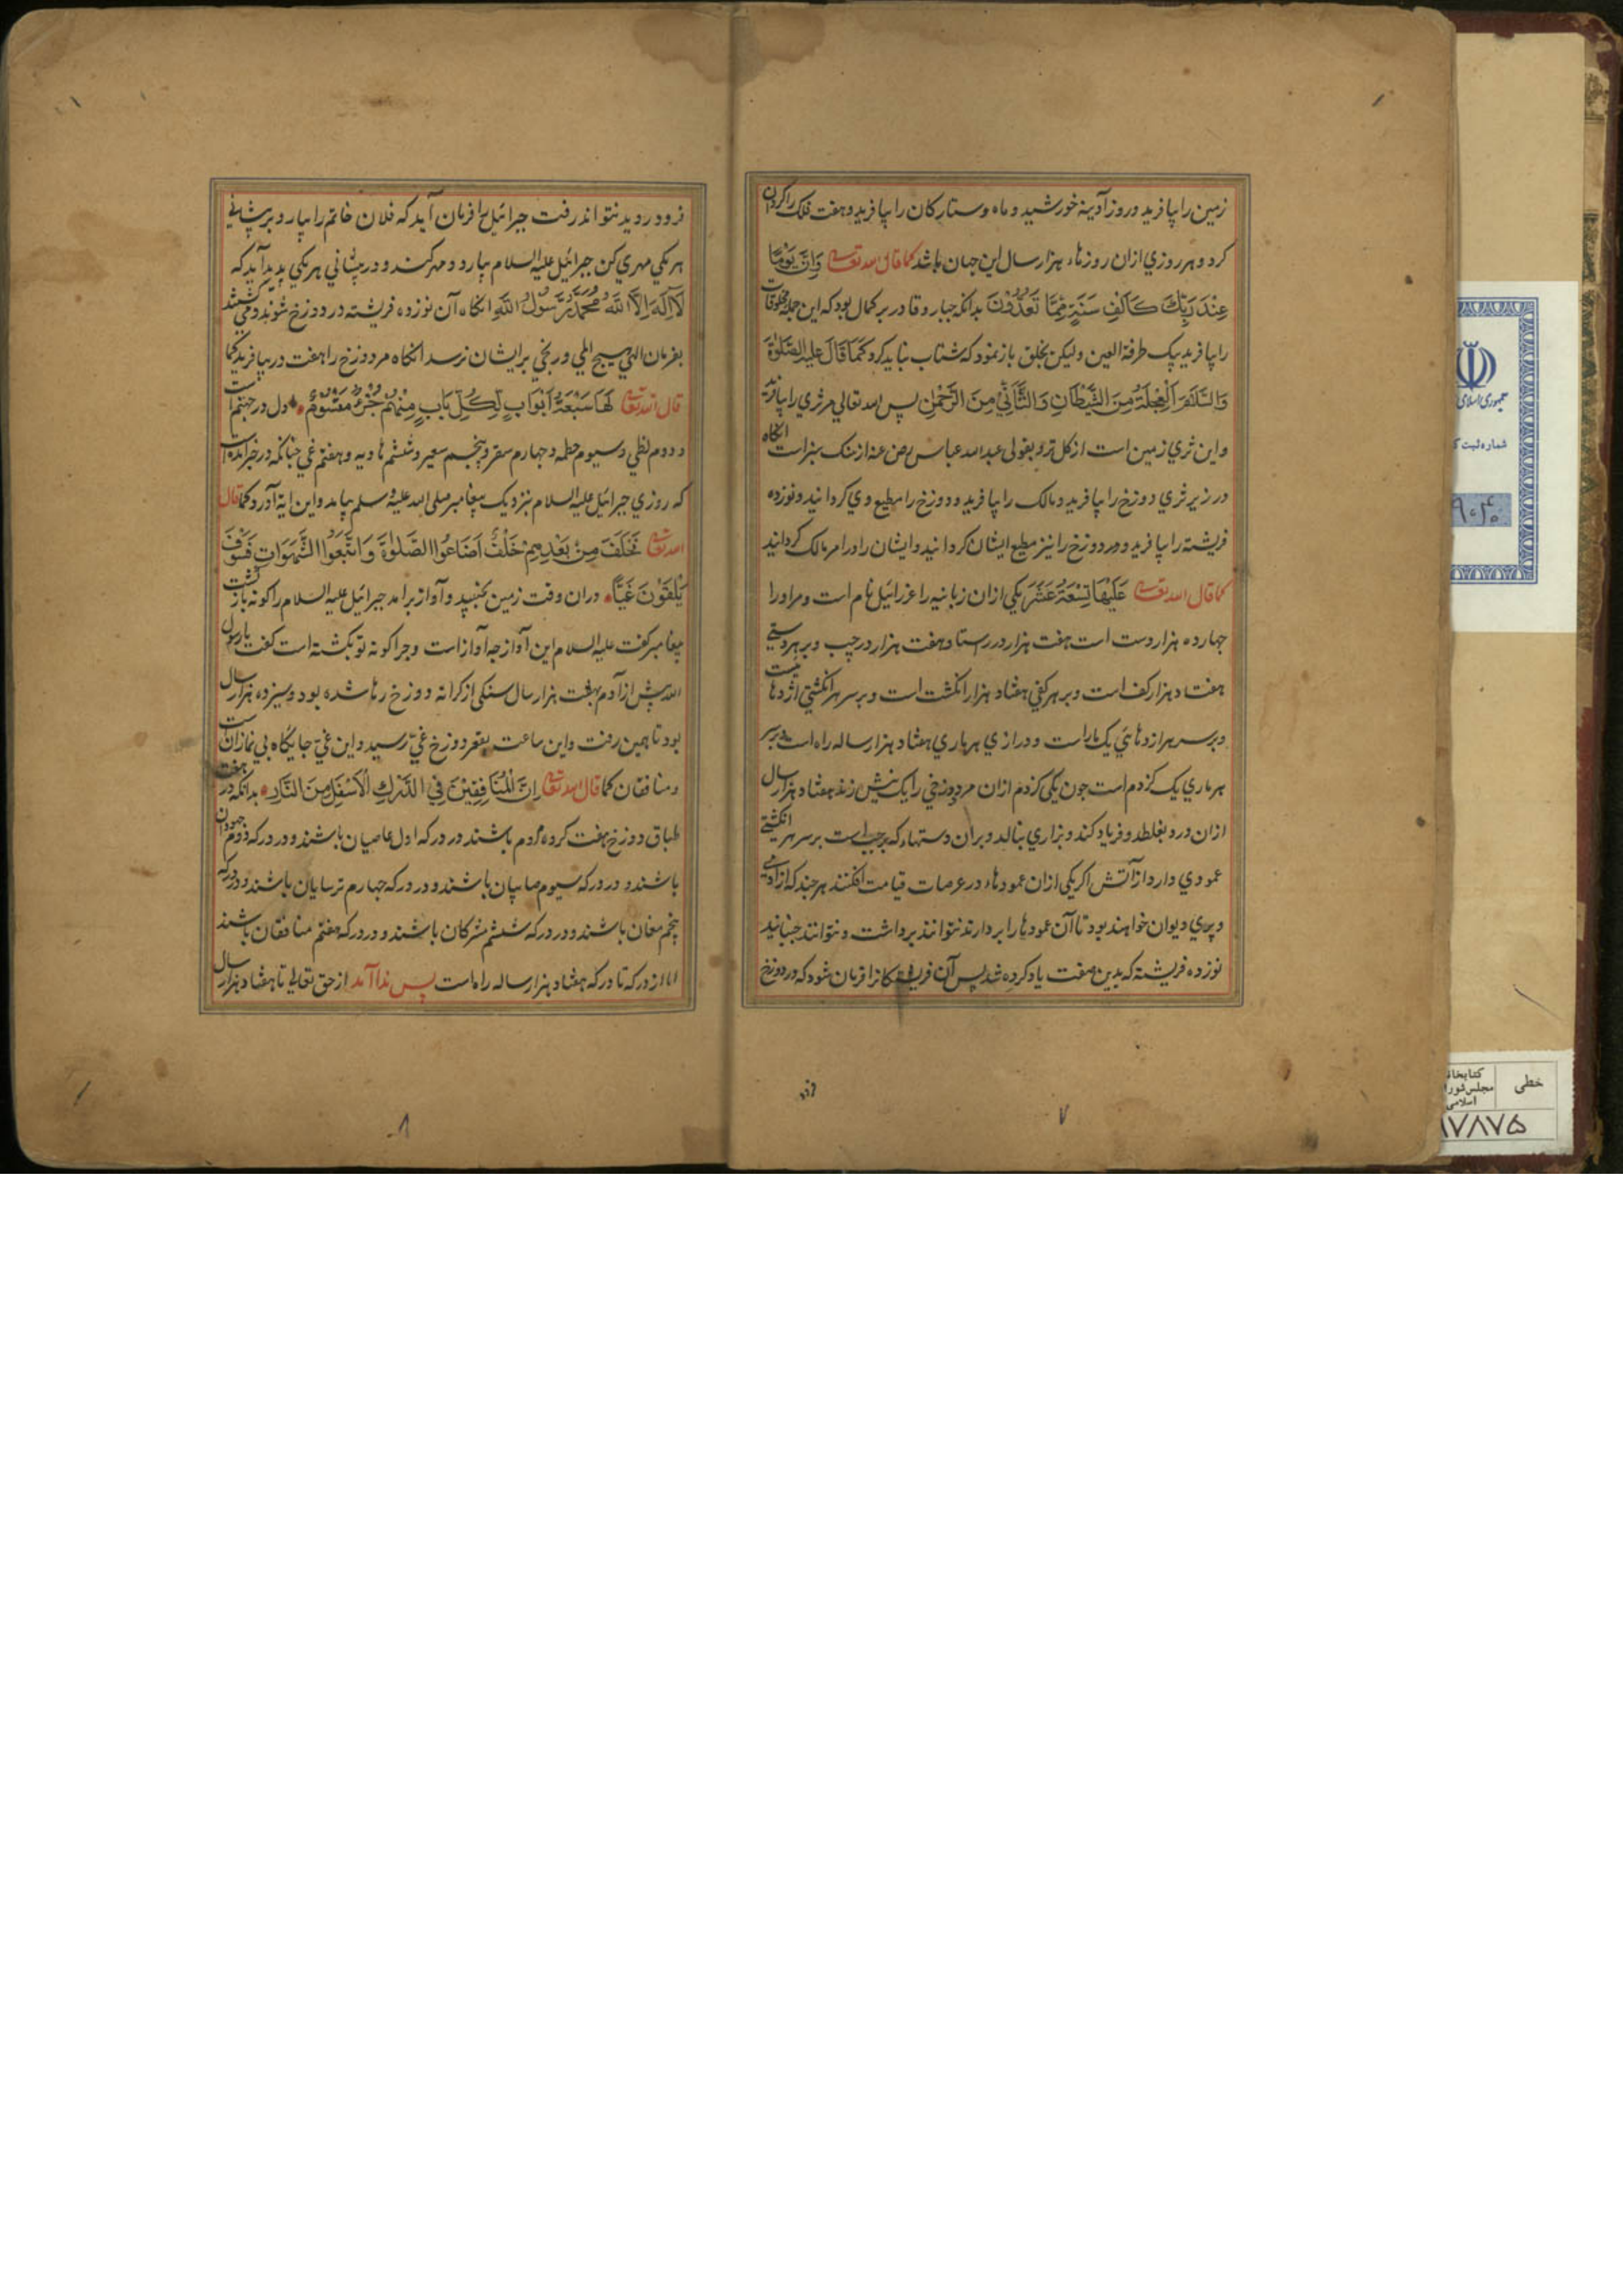 زمین را بیافرید و روز آدینه خورشید و ماه و ستارکان را بیافرید و هفت فلک را کردان
کرد و هر روزي ازان روزهاء هزار سال این جهان باشد کما قال الله تعالی وَاِنَّ یَوْمًا
عِنْدَ رَبِّكَ كَاَلْفِ سَنَةٍ مِمَّا تَعُدُّوْنَ بدانکه جبار و قادر بر کمال بود که این جمله مخلوقات
را بیافرید بیک طرفة العین ولیکن بخلق باز نمود که شتاب نباید کرد کَمَا قَالَ علیه الصَّلٰوةُ
وَالسَّلَام اَلْعَجَلَةُ مِنَ الشَّیْطَانِ وَالتَّاَنِّيْ مِنَ الرَّحْمٰنِ پس الله تعالي مر ثري را بیافرید
واین ثري زمین است از کل تر و بقولی عبدالله عباس رض عنه از سنک سبز است انکاه
در زیر ثري دوزخ را بیافرید و مالک را بیافرید و دوزخ را مطیع وي کردانید و نوزده
فریشته را بیافرید و مر دوزخ را نیز مطیع ایشان کردانید و ایشان را در امر مالک کردانید
کما قال الله تعالی عَلَیْهَا تِسْعَةَ عَشَرَ یکي ازان زبانیه را عزرائیل نام است و مر او را
چهارده هزار دست است هفت هزار در راستا و هفت هزار در چپ و بر هر دستي
هفتاد هزار کف است و بر هر کفي هفتاد هزار انکشت است و بر سر هر انکشتي اژدهائیست
و بر سر هر اژدهائي یک مار است و درازي هر ماري هفتاد هزار ساله راه است و بر سر
هر ماري یک کژدم است چون یکی کژدم ازان مر دوزخي را یک نیش زند هفتاد هزار سال
ازان درد بغلطد و فریاد کند و بزاري بنالد و بران دستهاء که بر چپ است بر سر هر انکشتي
عمودي دارد از آتش اکر یکی ازان عمودهاء در عرصات قیامت افکنند هر چند که از آدمي
و پري و دیوان خواهند بود تا آن عمودها را بردارند نتوانند برداشت و نتوانند جنبانید
نوزده فریشته که بدین صفت یاد کرده شد پس آن فریشتکانرا فرمان شود که در دوزخ
فرو
۷
فرود روید نتوانند رفت جبرائیل را فرمان آید که فلان خاتم را بیار و بر پیشاني
هر یکي مهري کن جبرائیل علیه السلام بیارد و مهر کند و در پیشاني هر یکي پدید آید که
لَااِلٰهَ اِلَّا اللّٰهُ مُحَمَّدٌ رَسُوْلُ اللّٰهِ انکاه آن نوزده فریشته در دوزخ شوند و مي کشند
بفرمان الهي هیچ المي و رنجي بر ایشان نرسد انکاه مر دوزخ را هفت در بیافرید کما
قال الله تعالی لَهَا سَبْعَةُ اَبْوَابٍ لِكُلِّ بَابٍ مِنْهُمْ جُزْءٌ مَقْسُوْمٌ اول در جهنم است
و دوم لظي و سیوم حطمه و چهارم سقر و پنجم سعیر و ششم هاویه و هفتم غي چنانکه در خبر آمده است
که روزي جبرائیل علیه السلام بنزدیک پیغامبر صلی الله علیه وسلم بیامد و این ایة آورد کما قال
الله تعالی فَخَلَفَ مِنْ بَعْدِهِمْ خَلْفٌ اَضَاعُوا الصَّلٰوةَ وَاتَّبَعُوا الشَّهَوَاتِ فَسَوْفَ
یَلْقَوْنَ غَیًّا دران وقت زمین بجنبید و آواز برامد جبرائیل علیه السلام را کونه باز کشت
پیغامبر کفت علیه السلام این آواز چه آواز است و چرا کونه تو بکشته است کفت یا رسول
الله پیش از آدم بهفت هزار سال سنکی از کرانه دوزخ رها شده بود و سیزده هزار سال
بود تا همین رفت و این ساعت بقعر دوزخ غيّ رسید و این غيّ جایکاه بي نمازانست
و منافقان کما قال الله تعالی اِنَّ الْمُنَافِقِیْنَ فِي الدَّرْكِ الْاَسْفَلِ مِنَ النَّارِ بدانکه در هفت
طباق دوزخ هفت کروه مردم باشند در درکه اول عاصیان باشند و در درکه دوم جهودان
باشند و در درکه سیوم صابیان باشند و در درکه چهارم ترسایان باشند و در درکه
پنجم مغان باشند و در درکه ششم مشرکان باشند و در درکه هفتم منافقان باشند
اما از درکه تا درکه هفتاد هزار ساله راه است پس ندا آمد از حق تعالي تا هفتاد هزار سال
۸
جمهوری اسلامی
شماره ثبت ک
خطی
کتابخانه
مجلس شورا
اسلامی
۱۷۸۷۵